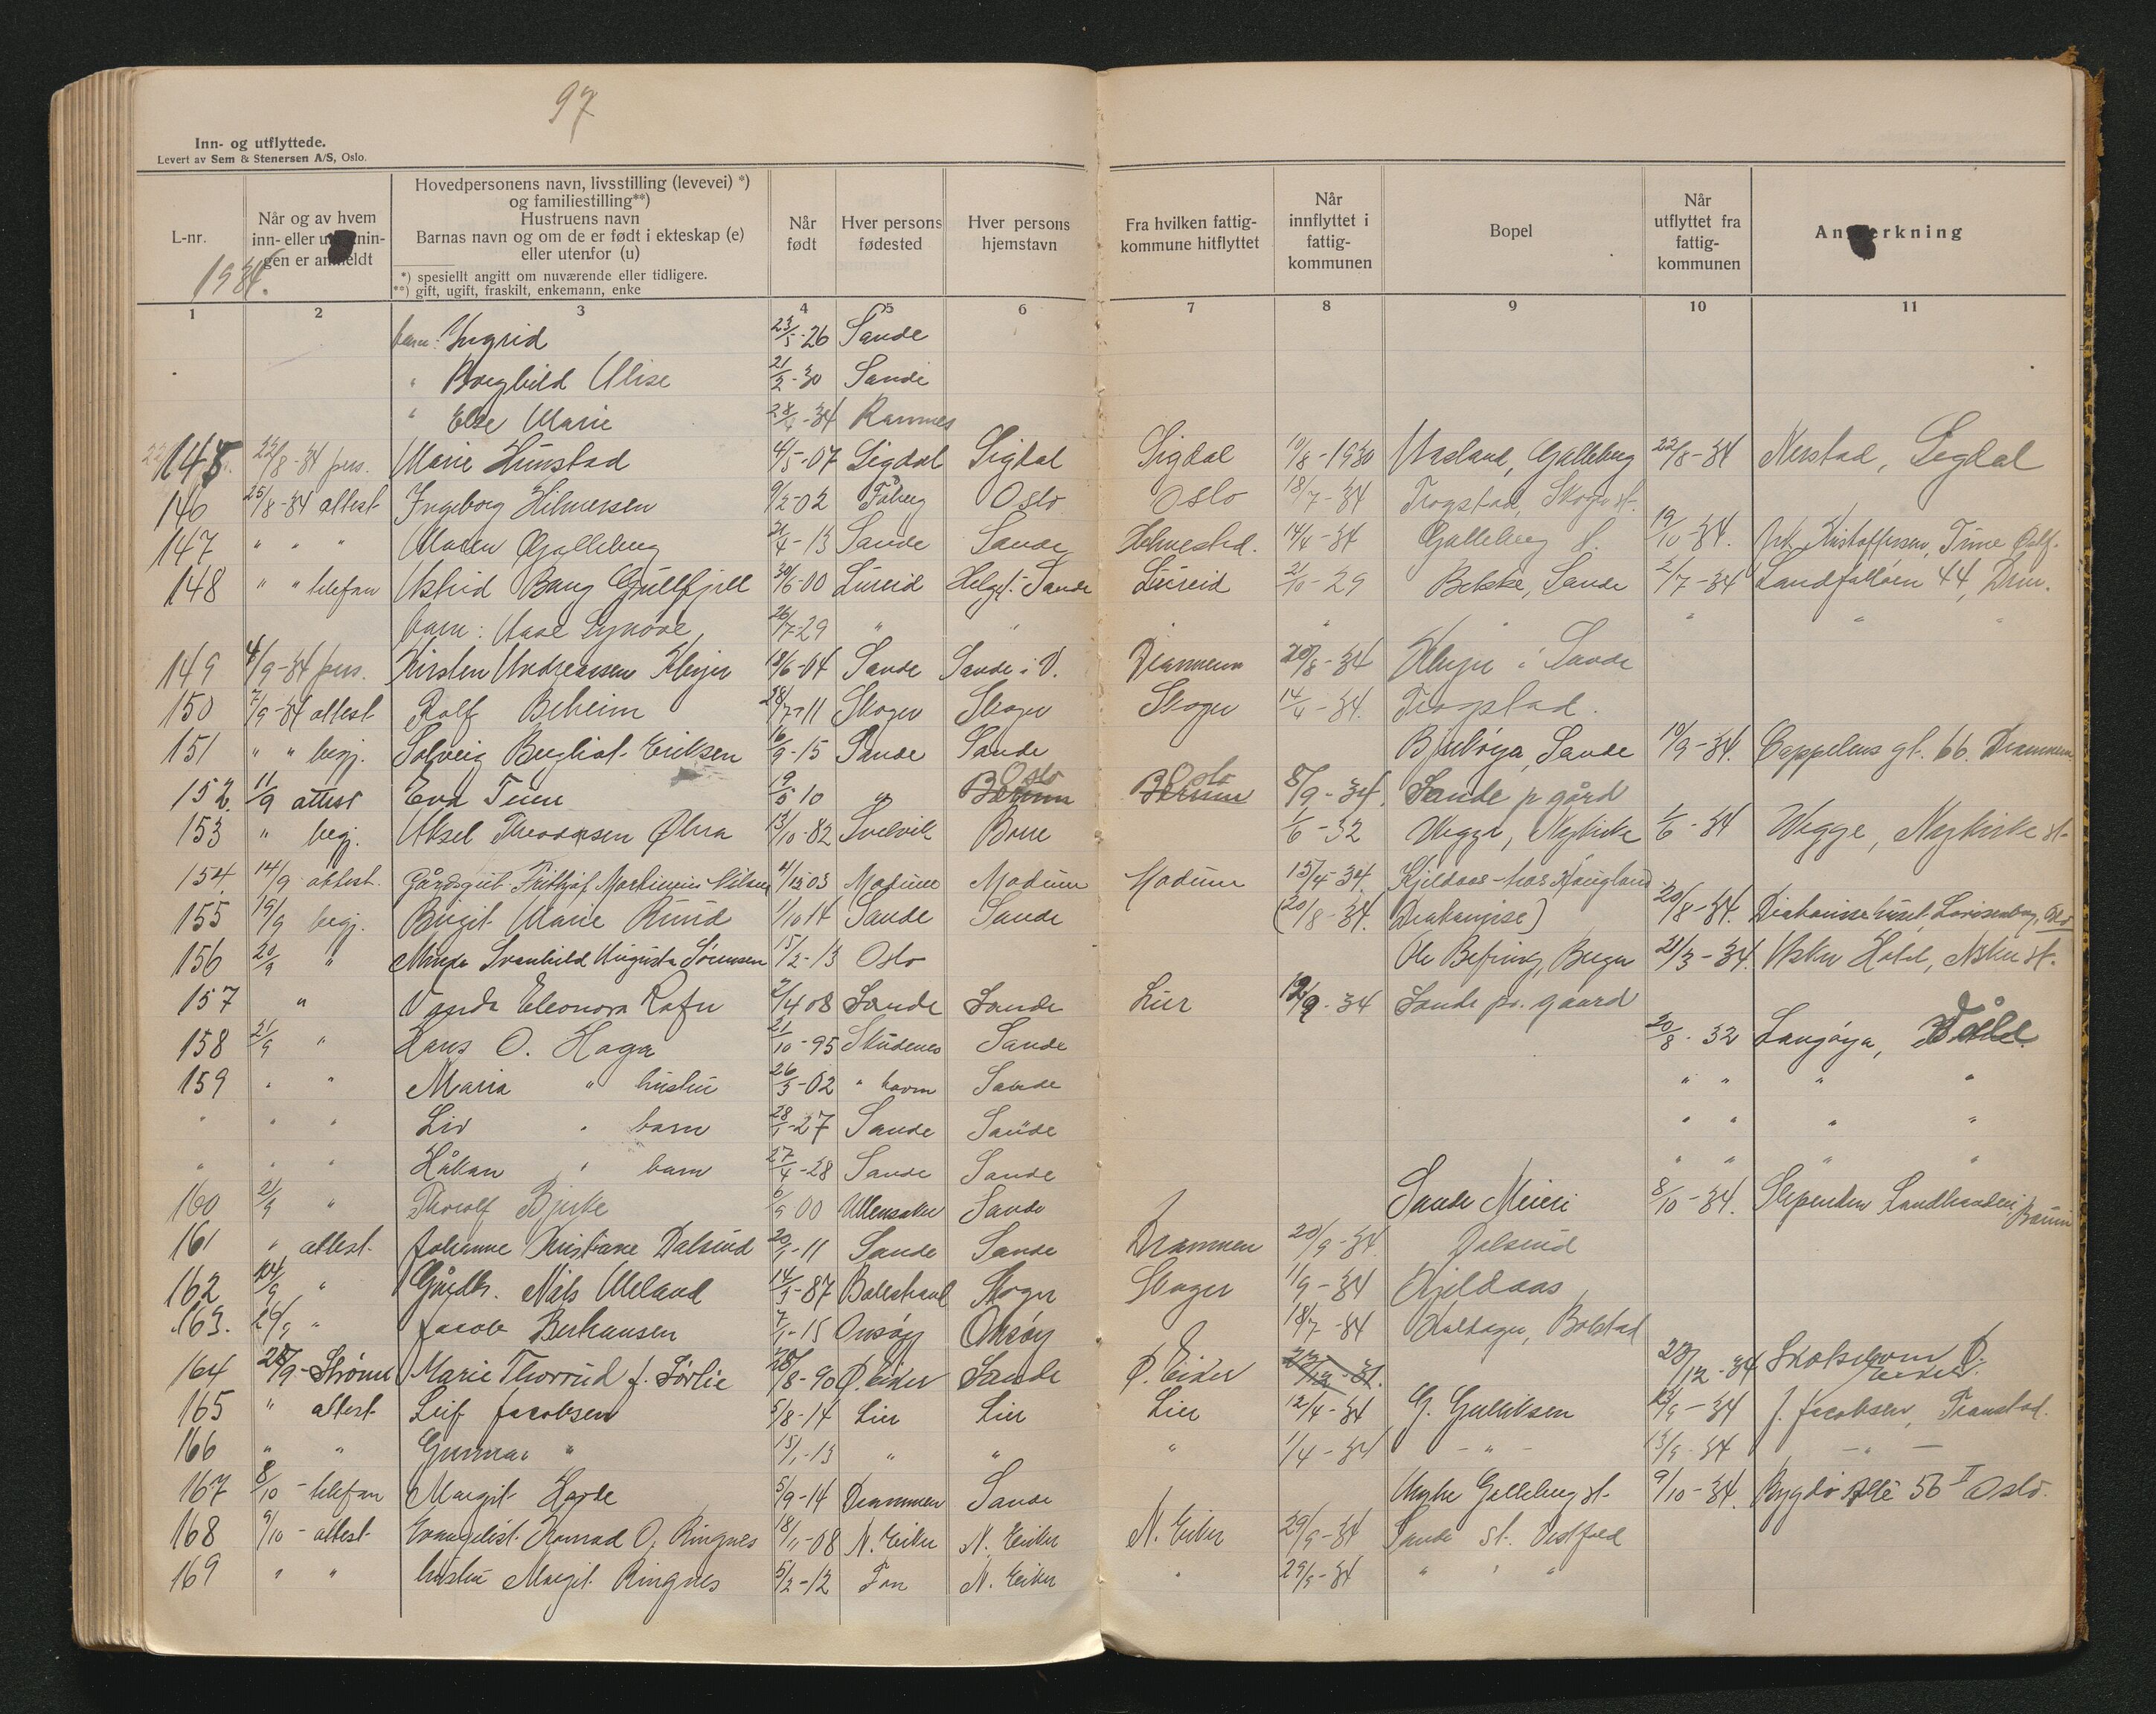 97
Inn- og utflyttede.
Levert av Sem & Stenersen A/S, Oslo.
L-nr. 1934.
Når og av hvem inn- eller gen er anmeldt
Hovedpersonens navn, livsstilling (levevei) *) og familiestilling**) Hustruens navn Barnas navn og om de er født i ekteskap (e) eller utenfor (u)
*) spesiellt angitt om nuværende eller tidligere.
**) gift, ugift, fraskilt, enkemann, enke
Når født
Hver persons fødested
Hver persons hjemstavn
Fra hvilken fattig-kommune hitflyttet
Når innflyttet i fattig-kommunen
Bopel
Når utflyttet fra fattig-kommunen
Anmerkning
1 2 3 4 5 6 7 8 9 10 11
barn: Ingrid 23/5-26 Sande
" Borghild Alise 21/2-30 Sande
" Else Marie 34 Ramnes
145. 22/8-34 pers. Marie Hunstad 4/5-07 Sigdal Sigdal Sigdal 10/8-1930 Galleberg 22/8-34 Nerstad, Sigdal
146 25/8-84 attest Ingeborg Hilmersen 9/2-02 Fåberg Oslo Oslo 18/7-34 Trogstad, Skoger st.
147 " " " Maren Galleberg 21/4-13 Sande Sande Holmestrd. 14/4-34 Galleberg 19/10-34. Kristoffersen,
148 " " telefon Astrid Bang Gullfjell 30/6-00 Lureid Helgl. Sande Lureid 21/10-29 Bekke, Sande 2/7-34 Landfalløen 44, Drm.
barn: Aase Synøve, 26/7-29 " " " " " "
149 4/9-34 pers. Kirsten Andreassen Klever 18/6-04 Sande Sande i V. Drammen 20/8-34 i Sande
150 7/9-34 attest Rolf Beheim 28/7-11 Skoger Skoger Skoger 14/4-34. Trogstad.
151 " " begj. Solveig Bergliot Eriksen 16/9-15 Sande Sande Bjerkøya, Sande 10/9-34. Cappelens gt. 66. Drammen
152. 11/9 attest Eva Teien 19/5 10 " Bærum Oslo Bærum Oslo 8/9-34. Sande p gård
153 " begj. Aksel Theodorsen Øhra 13/10-82 Svelvik Borre 1/6-32 Vegge, Nykirke 1/6-34 Wegge, Nykirke st-
154. 14/9 attest. Gårdsgut Fridthjof Martinius Nilsen 4/12 03 Modum Modum Modum 15/4-34. Kjeldaas - hos Haugland
155 19/9 begj. Birgit Marie Rund 1/10 14 Sande Sande (20/8-34. Diakonisse) 20/8-34. Diakonissehuset, Lovisenberg, Oslo
156 20/9 " Minda Svanhild Augusta Sørensen 15/2-13 Oslo Ole Berger 21/3-34. Asker Hotel, Asker st.
157 " Vanda Eleonora Rafn 2/4 08 Sande Sande Lier 12/9-34 Sande pr. gaard
158 21/9 " Hans O. Haga 21/10-95 Skudenes Sande 20/8-32 Langøya, Våle.
159 " " Maria " hustru 26/3-02 " havn Sande " " " "
" " " Liv " barn 28/1-27 Sande Sande " " " "
" " " Håkon " barn 27/4-28 Sande Sande " " " "
160 21/9 " Thorolf Bjerke 6/9 00 Ullensaker Sande Sande Meieri 8/10-34. Slependen Landhandleri, Bærum
161 " attest. Johanne Kristiane Dalsrud 20/1-11 Sande Sande Drammen 20/9-34. Dalsrud
162 24/9 " Gårdbr. Nils Meland 14/3-87 Balestrand Skoger Skoger 11/9-34 Kjeldaas
163. 26/9 " Jacob Berhansen 7/1-15 Onsøy Onsøy 18/7-34 Bolstad
164 28/9- Strømm Marie Thorrud f. Sørlie 28/8-90 Ø. Eiker Sande Ø. Eiker 28/12-34 Skotselven Ø. Eiker.
165 " attest Leif Jacobsen 5/8-14 Lier Lier Lier 12/4-34 G. Gulliksen 13/9-34 J. Jacobsen, Transtad.
166 " " Gunnar " 15/1-13 " " " 1/4-34 - " - 13/9-34 - " -
167 8/10 - telefon Margit Horde 5/9-14 Drammen Sande Galleberg st. 9/10-34. Bygdø Allé 56 I Oslo.
168 9/10 - attest Evangelist Konrad O. Ringnes 18/11-08 N. Eiker N. Eiker N. Eiker 29/9-34 Sande st. Vestfold
169 " " hustru Margit Ringnes 5/2-12 N. Eiker " 29/9-34 " " "